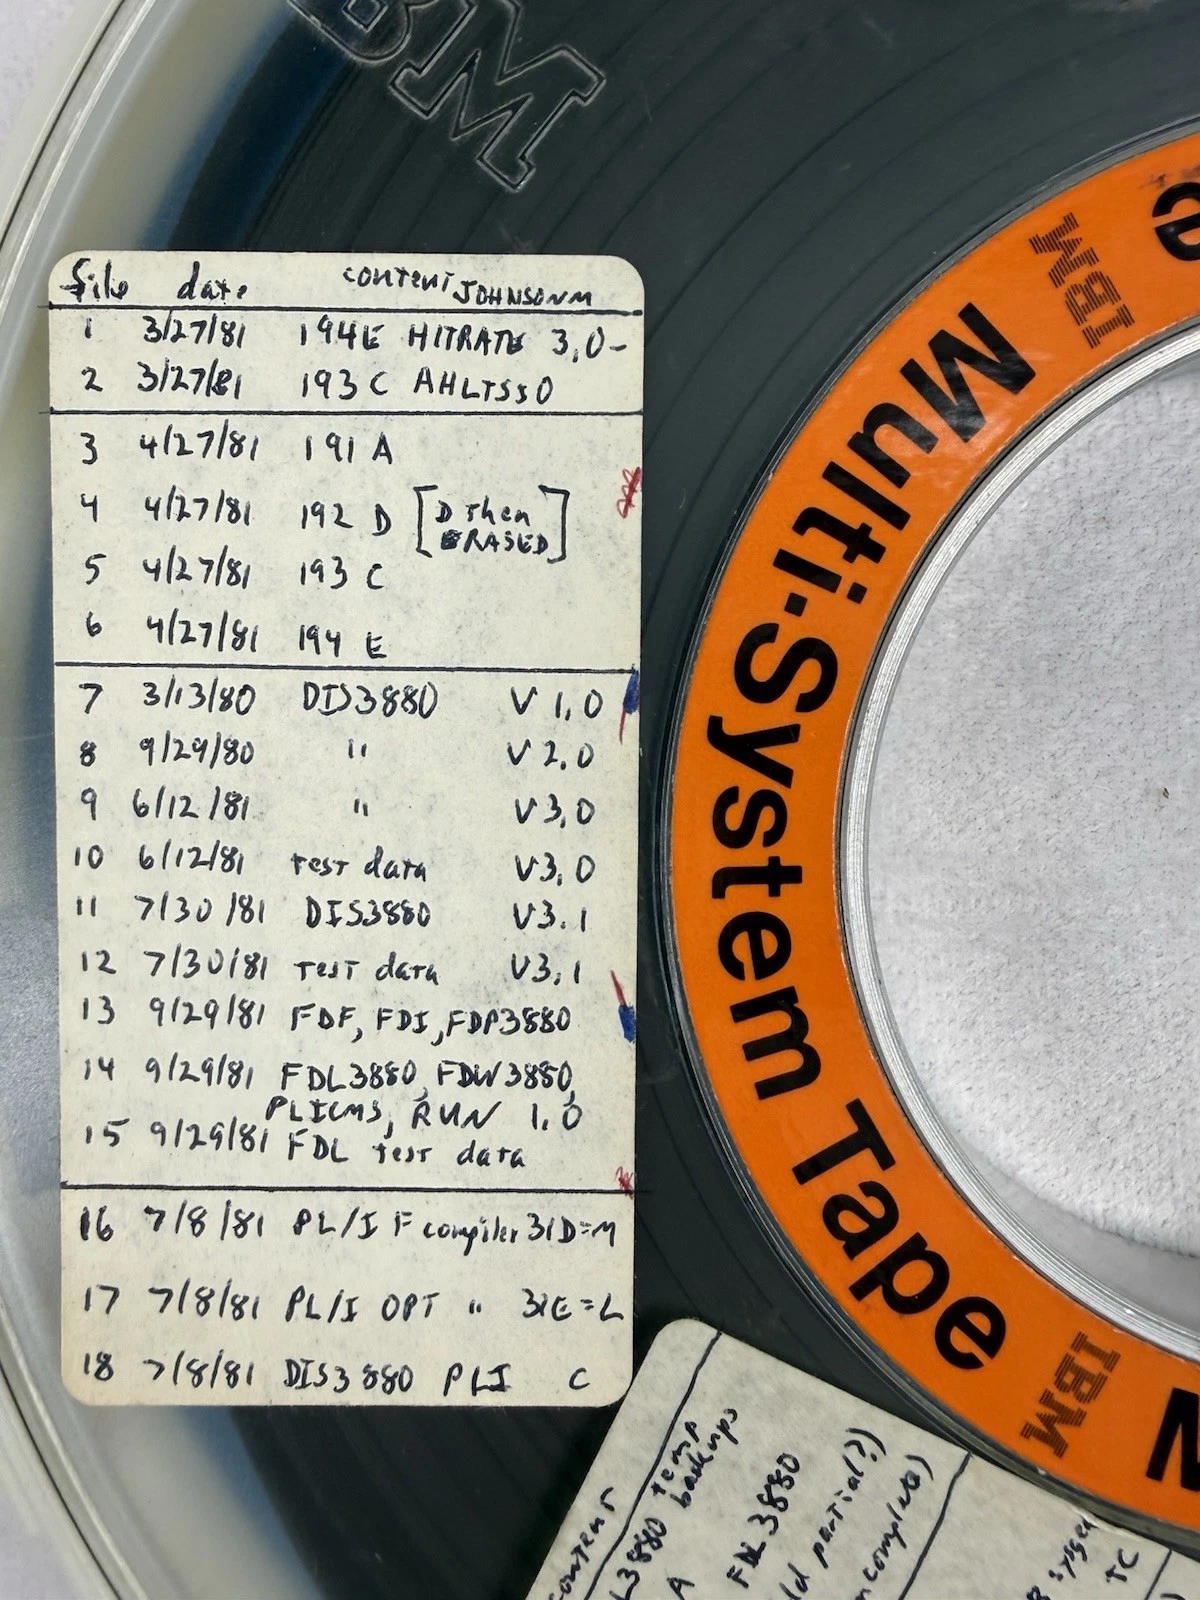 IBM
file date content JOHNSONM
1 3/27/81 194E HITRATE 3.0-
2 3/27/81 193 C AHLTSSO
3 4/27/81 191 A
4 4/27/81 192 D [D then
ERASED]
5 4/27/81 193 C
6 4/27/81 194 E
7 3/13/80 DIS3880 V 1.0
8 9/29/80 " V 2.0
9 6/12/81 " V3.0
10 6/12/81 test data V3.0
11 7/30/81 DIS3880 V3.1
12 7/30/81 test data V3.1
13 9/29/81 FDF, FDI, FDP3880
14 9/29/81 FDL3880, FDW3880,
PLICMS, RUN 1.0
15 9/29/81 FDL test data
16 7/8/81 PL/I F compiler 31D=M
17 7/8/81 PL/I OPT " 31E=L
18 7/8/81 DIS3880 PLI C
IBM
Multi-System Tape
IBM
content
L3880 temp
backups
A FDL3880
partial?)
TC